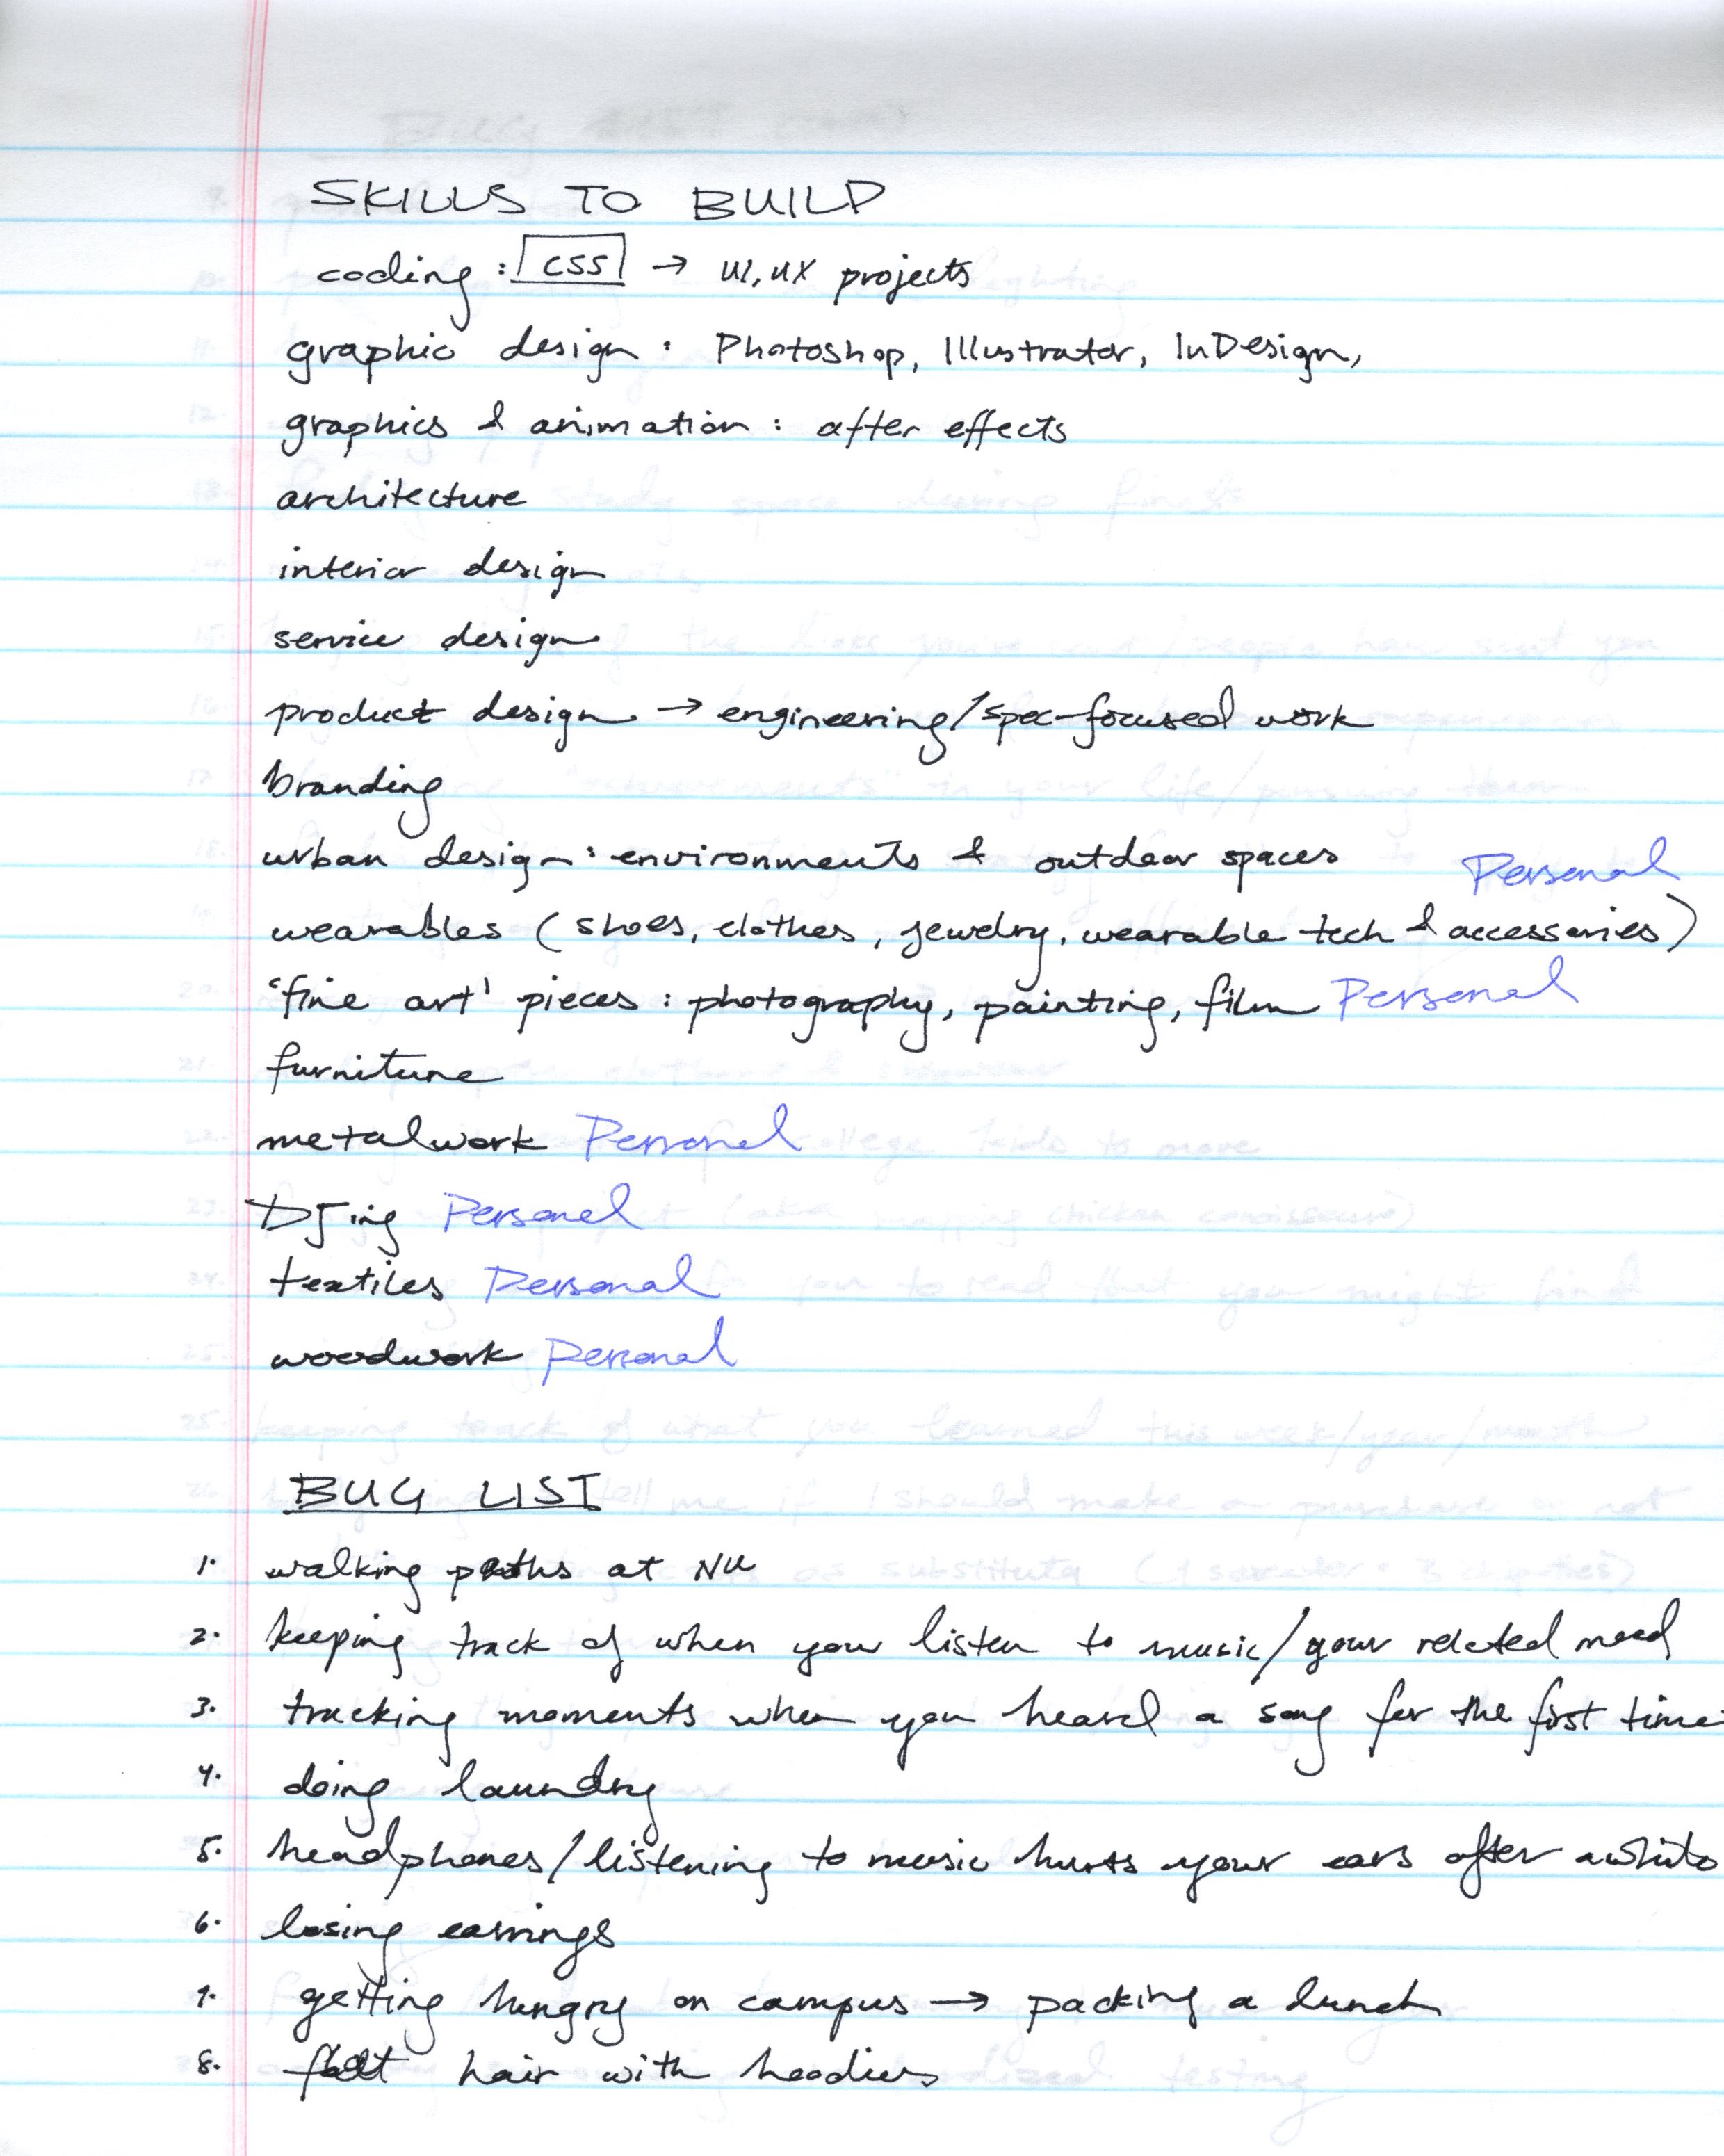 SKILLS TO BUILD
coding : CSS → UI, UX projects
graphic design : Photoshop, Illustrator, InDesign,
graphics & animation : after effects
architecture
interior design
service design
product design → engineering/spec-focused work
branding
urban design : environments & outdoor spaces
Personal
wearables (shoes, clothes, jewelry, wearable tech & accessories)
'fine art' pieces : photography, painting, film Personal
furniture
metalwork Personal
DJing Personal
textiles Personal
woodwork Personal
BUG LIST
1. walking paths at NU
2. keeping track of when you listen to music/your related mood
3. tracking moments when you heard a song for the first time
4. doing laundry
5. headphones/listening to music hurts your ears after awhile
6. losing earrings
7. getting hungry on campus → packing a lunch
8. hair with hoodies